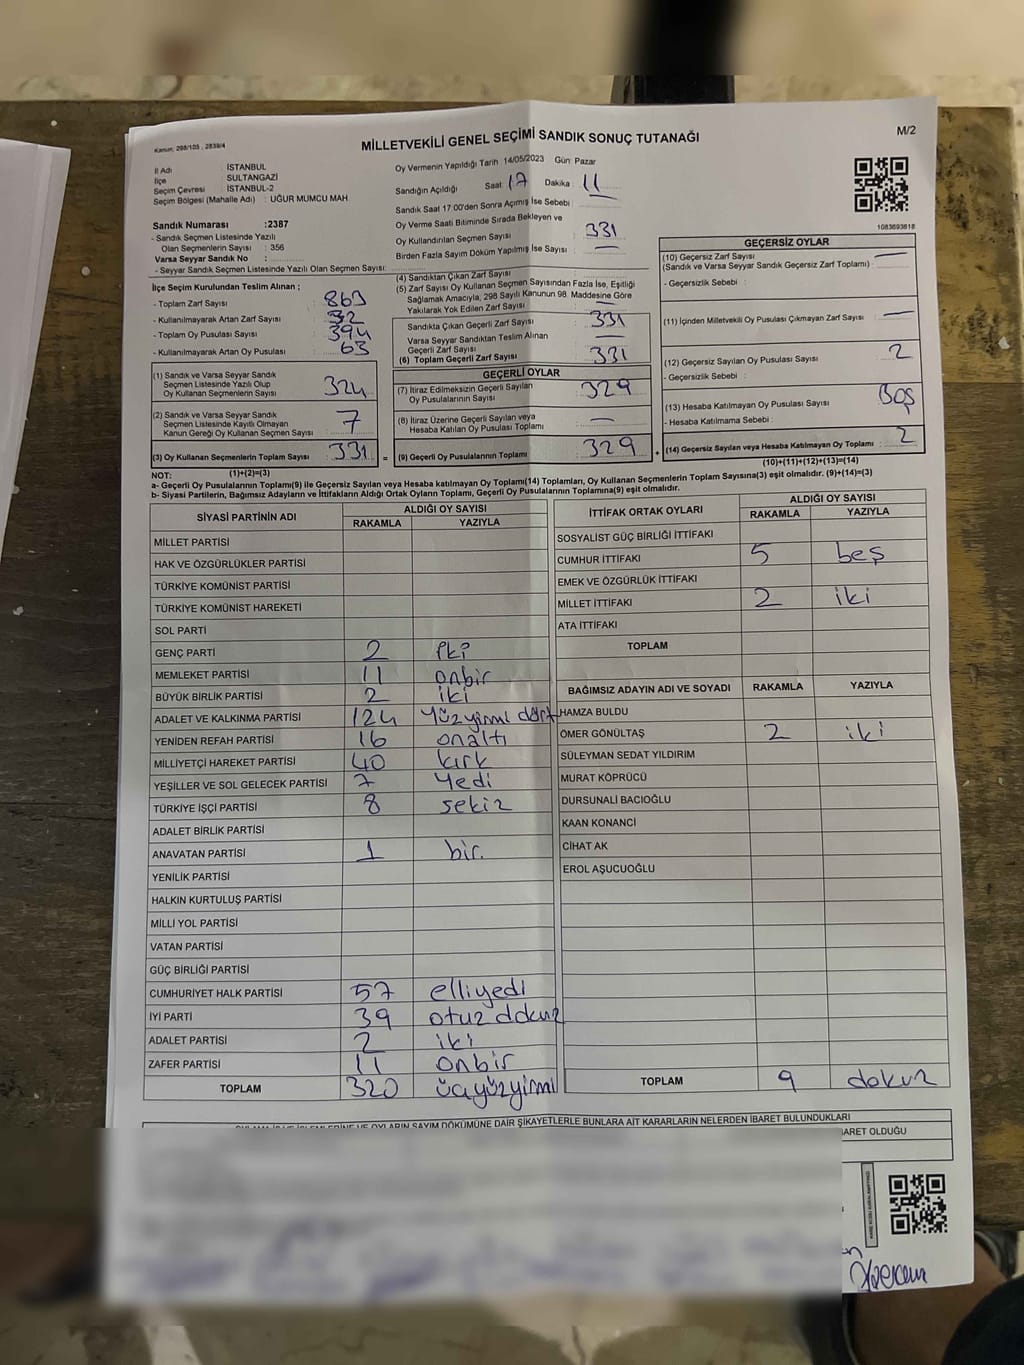 Kanun: 298/105 , 2839/4
MİLLETVEKİLİ GENEL SEÇİMİ SANDIK SONUÇ TUTANAĞI
M/2
İl Adı : İSTANBUL
İlçe : SULTANGAZİ
Seçim Çevresi : İSTANBUL-2
Seçim Bölgesi (Mahalle Adı) : UĞUR MUMCU MAH.
Sandık Numarası :2387
- Sandık Seçmen Listesinde Yazılı
Olan Seçmenlerin Sayısı : 356
Varsa Seyyar Sandık No :
- Seyyar Sandık Seçmen Listesinde Yazılı Olan Seçmen Sayısı:
Oy Vermenin Yapıldığı Tarih 14/05/2023 Gün: Pazar
Sandığın Açıldığı Saat 17 Dakika : 11
Sandık Saat 17:00'den Sonra Açımış İse Sebebi :
Oy Verme Saati Bitiminde Sırada Bekleyen ve
Oy Kullandırılan Seçmen Sayısı : 331
Birden Fazla Sayım Döküm Yapılmış İse Sayısı : —
1083693618
İlçe Seçim Kurulundan Teslim Alınan ;
- Toplam Zarf Sayısı : 863
- Kullanılmayarak Artan Zarf Sayısı : 32
- Toplam Oy Pusulası Sayısı : 394
- Kullanılmayarak Artan Oy Pusulası : 63
(1) Sandık ve Varsa Seyyar Sandık
Seçmen Listesinde Yazılı Olup
Oy Kullanan Seçmenlerin Sayısı : 324
(2) Sandık ve Varsa Seyyar Sandık
Seçmen Listesinde Kayıtlı Olmayan
Kanun Gereği Oy Kullanan Seçmen Sayısı : 7
(3) Oy Kullanan Seçmenlerin Toplam Sayısı : 331
(1)+(2)=(3)
(4) Sandıktan Çıkan Zarf Sayısı :
(5) Zarf Sayısı Oy Kullanan Seçmen Sayısından Fazla İse, Eşitliği
Sağlamak Amacıyla, 298 Sayılı Kanunun 98. Maddesine Göre
Yakılarak Yok Edilen Zarf Sayısı : —
Sandıkta Çıkan Geçerli Zarf Sayısı : 331
Varsa Seyyar Sandıktan Teslim Alınan
Geçerli Zarf Sayısı : —
(6) Toplam Geçerli Zarf Sayısı : 331
GEÇERLİ OYLAR
(7) İtiraz Edilmeksizin Geçerli Sayılan
Oy Pusulalarının Sayısı : 329
(8) İtiraz Üzerine Geçerli Sayılan veya
Hesaba Katılan Oy Pusulası Toplamı : —
= (9) Geçerli Oy Pusulalarının Toplamı : 329
GEÇERSİZ OYLAR
(10) Geçersiz Zarf Sayısı : —
(Sandık ve Varsa Seyyar Sandık Geçersiz Zarf Toplamı)
- Geçersizlik Sebebi :
(11) İçinden Milletvekili Oy Pusulası Çıkmayan Zarf Sayısı : —
(12) Geçersiz Sayılan Oy Pusulası Sayısı : 2
- Geçersizlik Sebebi :
(13) Hesaba Katılmayan Oy Pusulası Sayısı : Boş
- Hesaba Katılmama Sebebi :
+ (14) Geçersiz Sayılan veya Hesaba Katılmayan Oy Toplamı : 2
(10)+(11)+(12)+(13)=(14)
NOT:
a- Geçerli Oy Pusulalarının Toplamı(9) ile Geçersiz Sayılan veya Hesaba katılmayan Oy Toplamı(14) Toplamları, Oy Kullanan Seçmenlerin Toplam Sayısına(3) eşit olmalıdır. (9)+(14)=(3)
b- Siyasi Partilerin, Bağımsız Adayların ve İttifakların Aldığı Ortak Oyların Toplamı, Geçerli Oy Pusulalarının Toplamına(9) eşit olmalıdır.
SİYASİ PARTİNİN ADI ALDIĞI OY SAYISI
RAKAMLA YAZIYLA
MİLLET PARTİSİ
HAK VE ÖZGÜRLÜKLER PARTİSİ
TÜRKİYE KOMÜNİST PARTİSİ
TÜRKİYE KOMÜNİST HAREKETİ
SOL PARTİ
GENÇ PARTİ 2 iki
MEMLEKET PARTİSİ 11 onbir
BÜYÜK BİRLİK PARTİSİ 2 iki
ADALET VE KALKINMA PARTİSİ 124 yüzyirmi dört
YENİDEN REFAH PARTİSİ 16 onaltı
MİLLİYETÇİ HAREKET PARTİSİ 40 kırk
YEŞİLLER VE SOL GELECEK PARTİSİ 7 yedi
TÜRKİYE İŞÇİ PARTİSİ 8 sekiz
ADALET BİRLİK PARTİSİ
ANAVATAN PARTİSİ 1 bir.
YENİLİK PARTİSİ
HALKIN KURTULUŞ PARTİSİ
MİLLİ YOL PARTİSİ
VATAN PARTİSİ
GÜÇ BİRLİĞİ PARTİSİ
CUMHURİYET HALK PARTİSİ 57 elliyedi
İYİ PARTİ 39 otuz dokuz
ADALET PARTİSİ 2 iki
ZAFER PARTİSİ 11 onbir
TOPLAM 320 üçyüzyirmi
İTTİFAK ORTAK OYLARI ALDIĞI OY SAYISI
RAKAMLA YAZIYLA
SOSYALİST GÜÇ BİRLİĞİ İTTİFAKI
CUMHUR İTTİFAKI 5 beş
EMEK VE ÖZGÜRLÜK İTTİFAKI
MİLLET İTTİFAKI 2 iki
ATA İTTİFAKI
TOPLAM
BAĞIMSIZ ADAYIN ADI VE SOYADI RAKAMLA YAZIYLA
HAMZA BULDU
ÖMER GÖNÜLTAŞ 2 iki
SÜLEYMAN SEDAT YILDIRIM
MURAT KÖPRÜCÜ
DURSUNALİ BACIOĞLU
KAAN KONANCİ
CİHAT AK
EROL AŞUCUOĞLU
TOPLAM 9 dokuz
DÖKÜMÜNE DAİR ŞİKAYETLERLE BUNLARA AİT KARARLARIN NELERDEN İBARET BULUNDUKLARI
BARET OLDUĞU